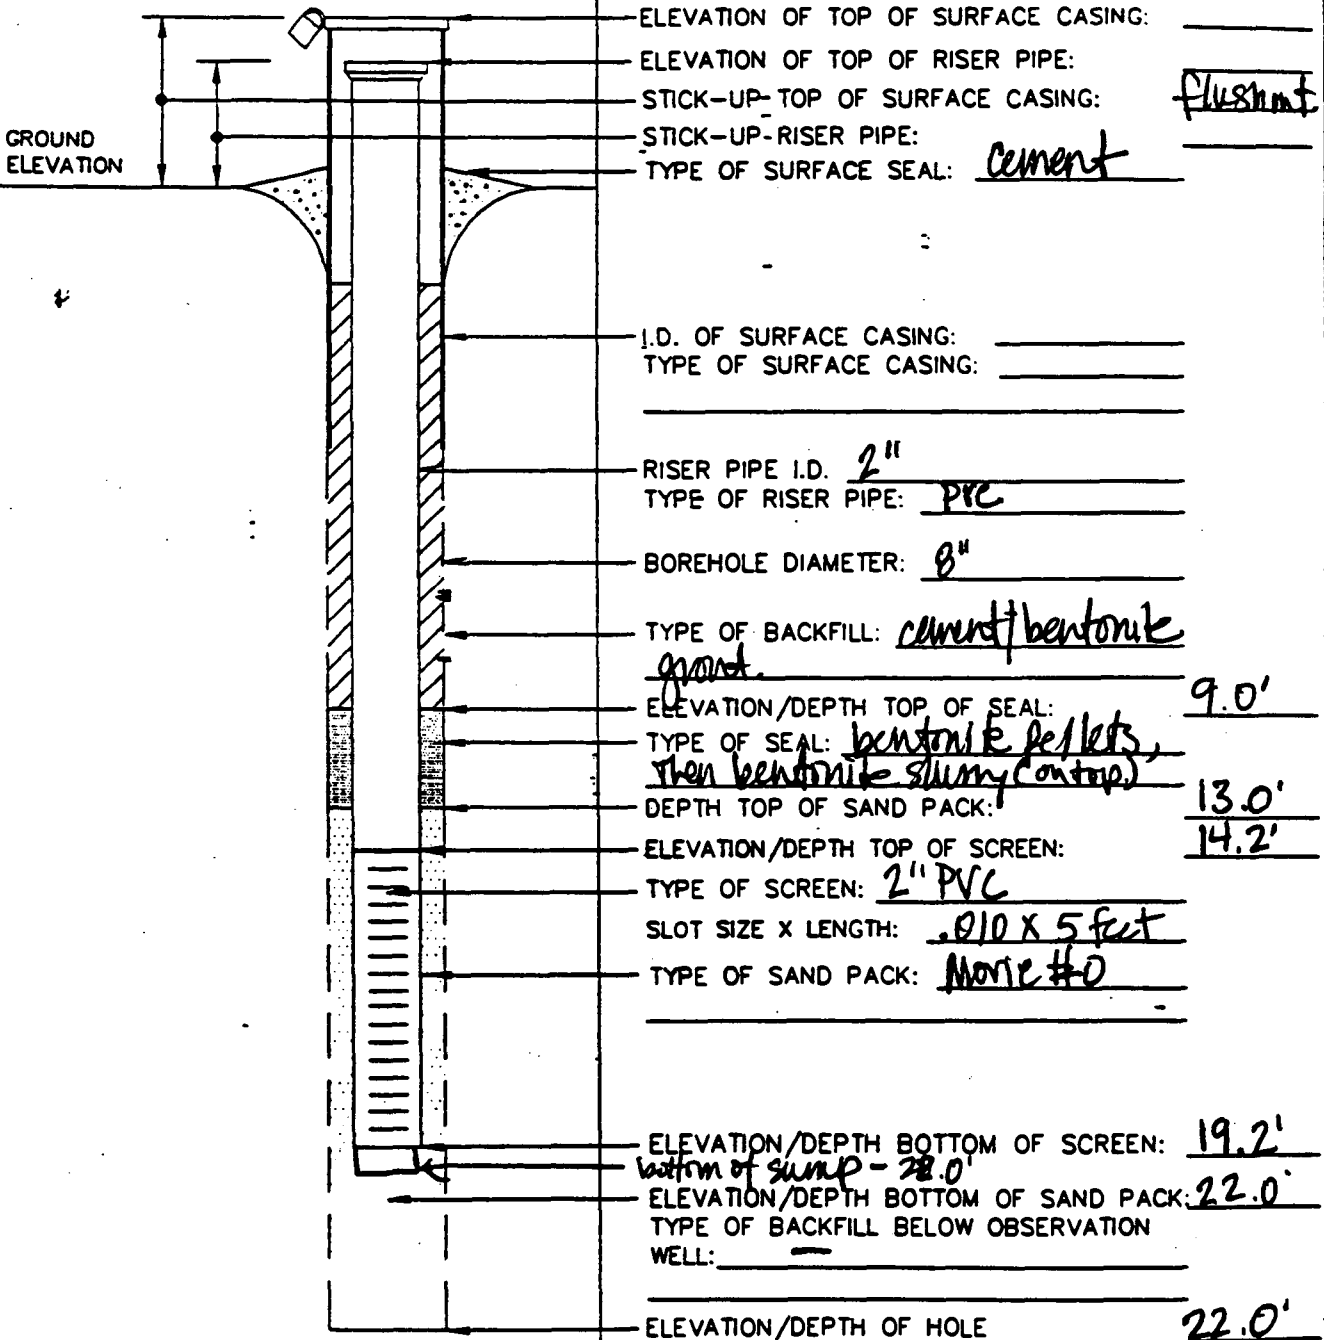 ELEVATION OF TOP OF SURFACE CASING:
ELEVATION OF TOP OF RISER PIPE:
STICK-UP-TOP OF SURFACE CASING: flushmt
STICK-UP-RISER PIPE:
GROUND
ELEVATION
TYPE OF SURFACE SEAL: cement
I.D. OF SURFACE CASING:
TYPE OF SURFACE CASING:
RISER PIPE I.D. 2"
TYPE OF RISER PIPE: PVC
BOREHOLE DIAMETER: 8"
TYPE OF BACKFILL: cement/bentonite
grout.
ELEVATION/DEPTH TOP OF SEAL: 9.0'
TYPE OF SEAL: bentonite pellets,
then bentonite slurry (on top)
DEPTH TOP OF SAND PACK: 13.0'
ELEVATION/DEPTH TOP OF SCREEN: 14.2'
TYPE OF SCREEN: 2" PVC
SLOT SIZE X LENGTH: .010 X 5 feet
TYPE OF SAND PACK: Morie #0
ELEVATION/DEPTH BOTTOM OF SCREEN: 19.2'
bottom of sump -
ELEVATION/DEPTH BOTTOM OF SAND PACK: 22.0'
TYPE OF BACKFILL BELOW OBSERVATION
WELL: —
ELEVATION/DEPTH OF HOLE 22.0'